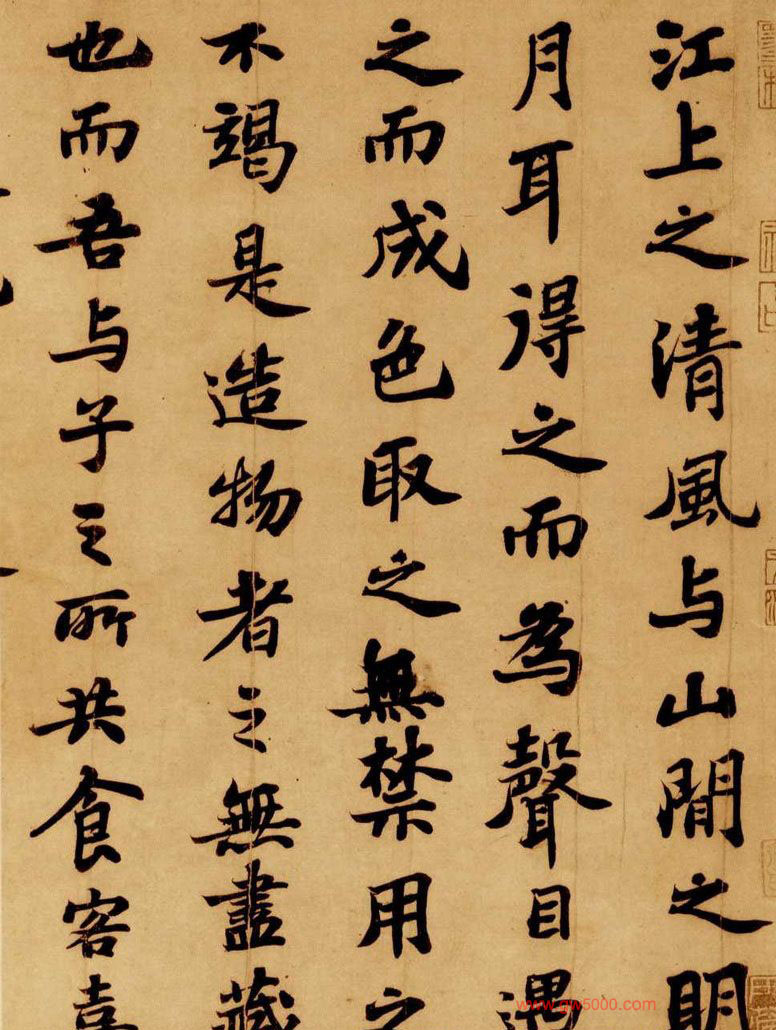 江上之清風与山間之明
月耳得之而為聲目遇
之而成色取之無禁用之
不竭是造物者之無盡藏
也而吾与子之所共食客喜
www.gtw5000.com